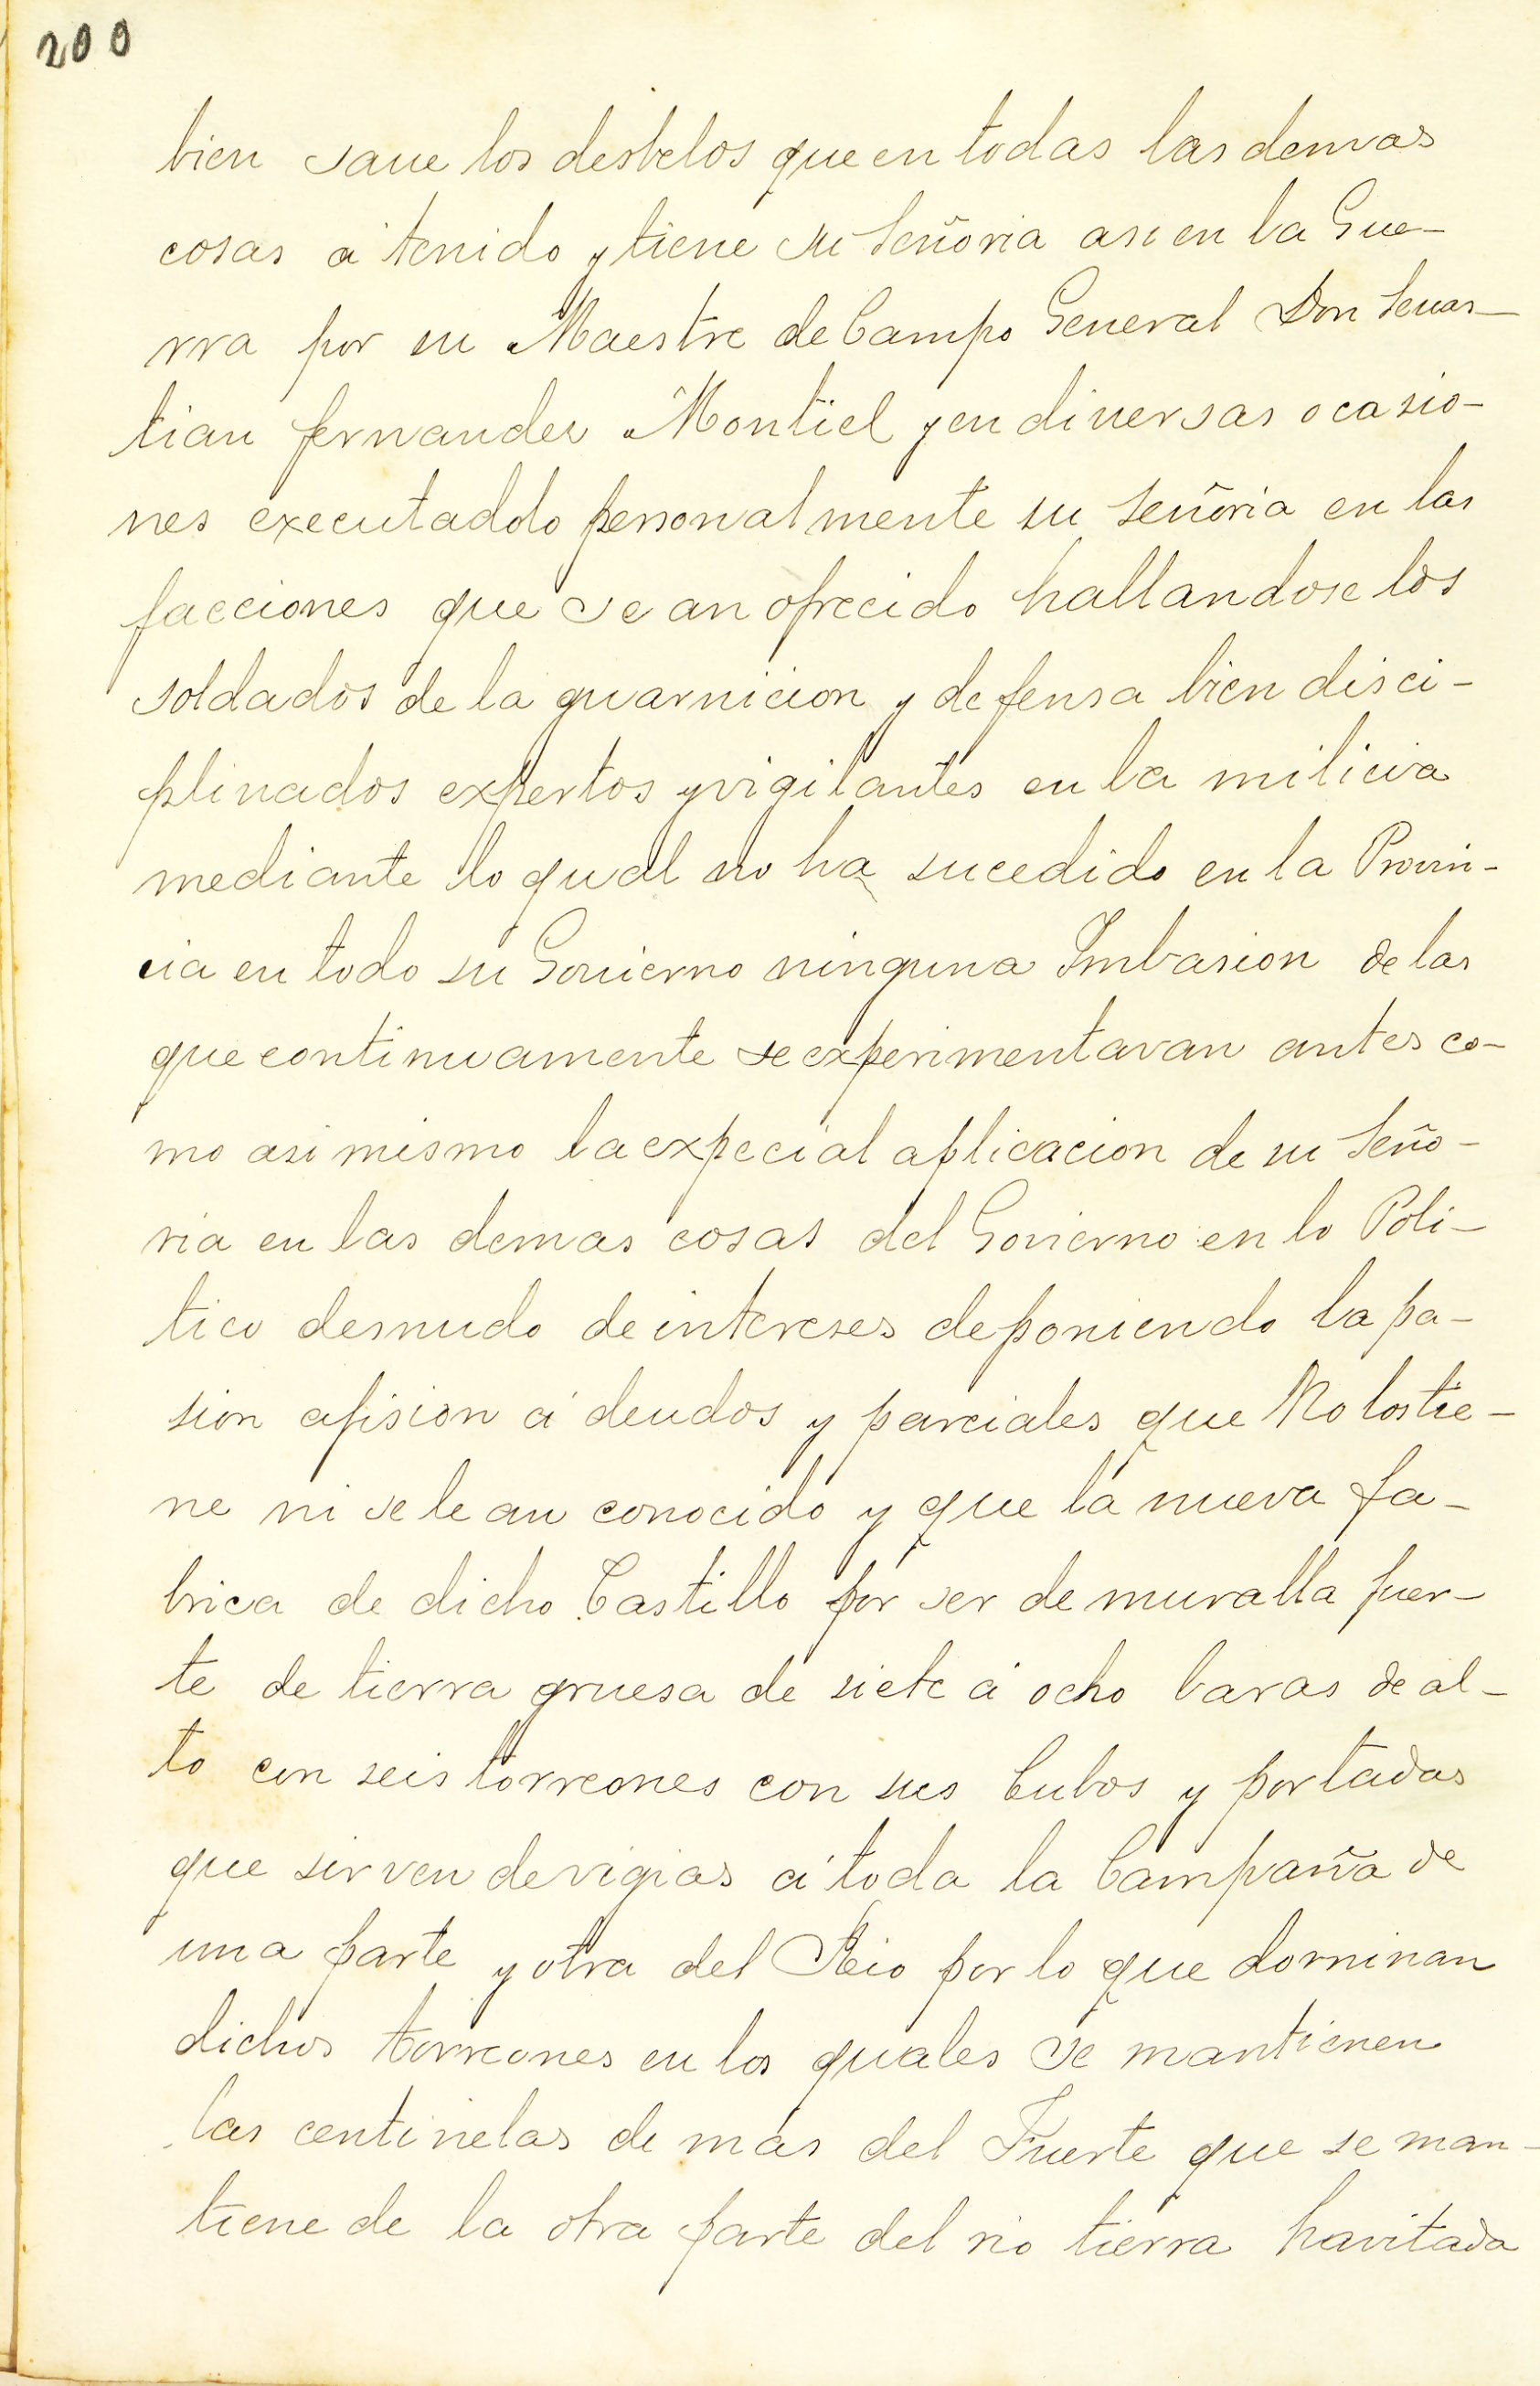 200
bien saue los desbelos que en todas las demas
cosas á tenido y tiene su Señoria asi en la Gue-
rra por su Maestre de Campo General Don Seuas-
tian fernandez Montiel y en diuersas ocasio-
nes executaddo personalmente su Señoria en las
facciones que se an ofrecido hallandose los
soldados de la guarnicion y defensa bien disci-
plinados expertos y vigilantes en la milicia
mediante lo qual no ha sucedido en la Provin-
cia en todo su Gouierno ninguna Imbasion de las
que continuamente se experimentavan antes co-
mo asi mismo la expecial aplicacion de su Seño-
ria en las demas cosas del Govierno en lo Poli-
tico desnudo de intereses deponiendo la pa-
sion afision á deudos y parciales que No los tie-
ne ni se le an conocido y que la nueva fa-
brica de dicho Castillo por ser de muralla fuer-
te de tierra gruesa de siete á ocho baras de al-
to con seis torreones con sus Cubos y portadas
que sirven de vigias á toda la Campaña de
una parte y otra del Rio por lo que dominan
dichos torreones en los quales se mantienen
las centinelas de mas del Fuerte que se man-
tiene de la otra parte del rio tierra havitada